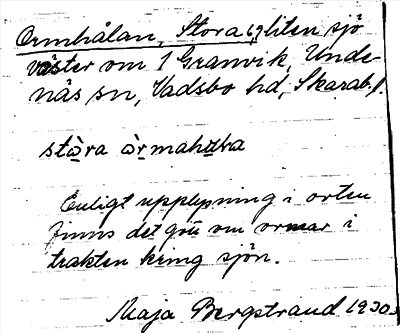 Ormhålan, Stora, liten sjö
väster om 1 Granvik, Unde-
näs sn, Vadsbo hd, Skarab. l.
stòra òrmahɷla
Enligt upplysning i orten
finns det gott om ormar i
trakten kring sjön.
Maja Bergstrand 1930.